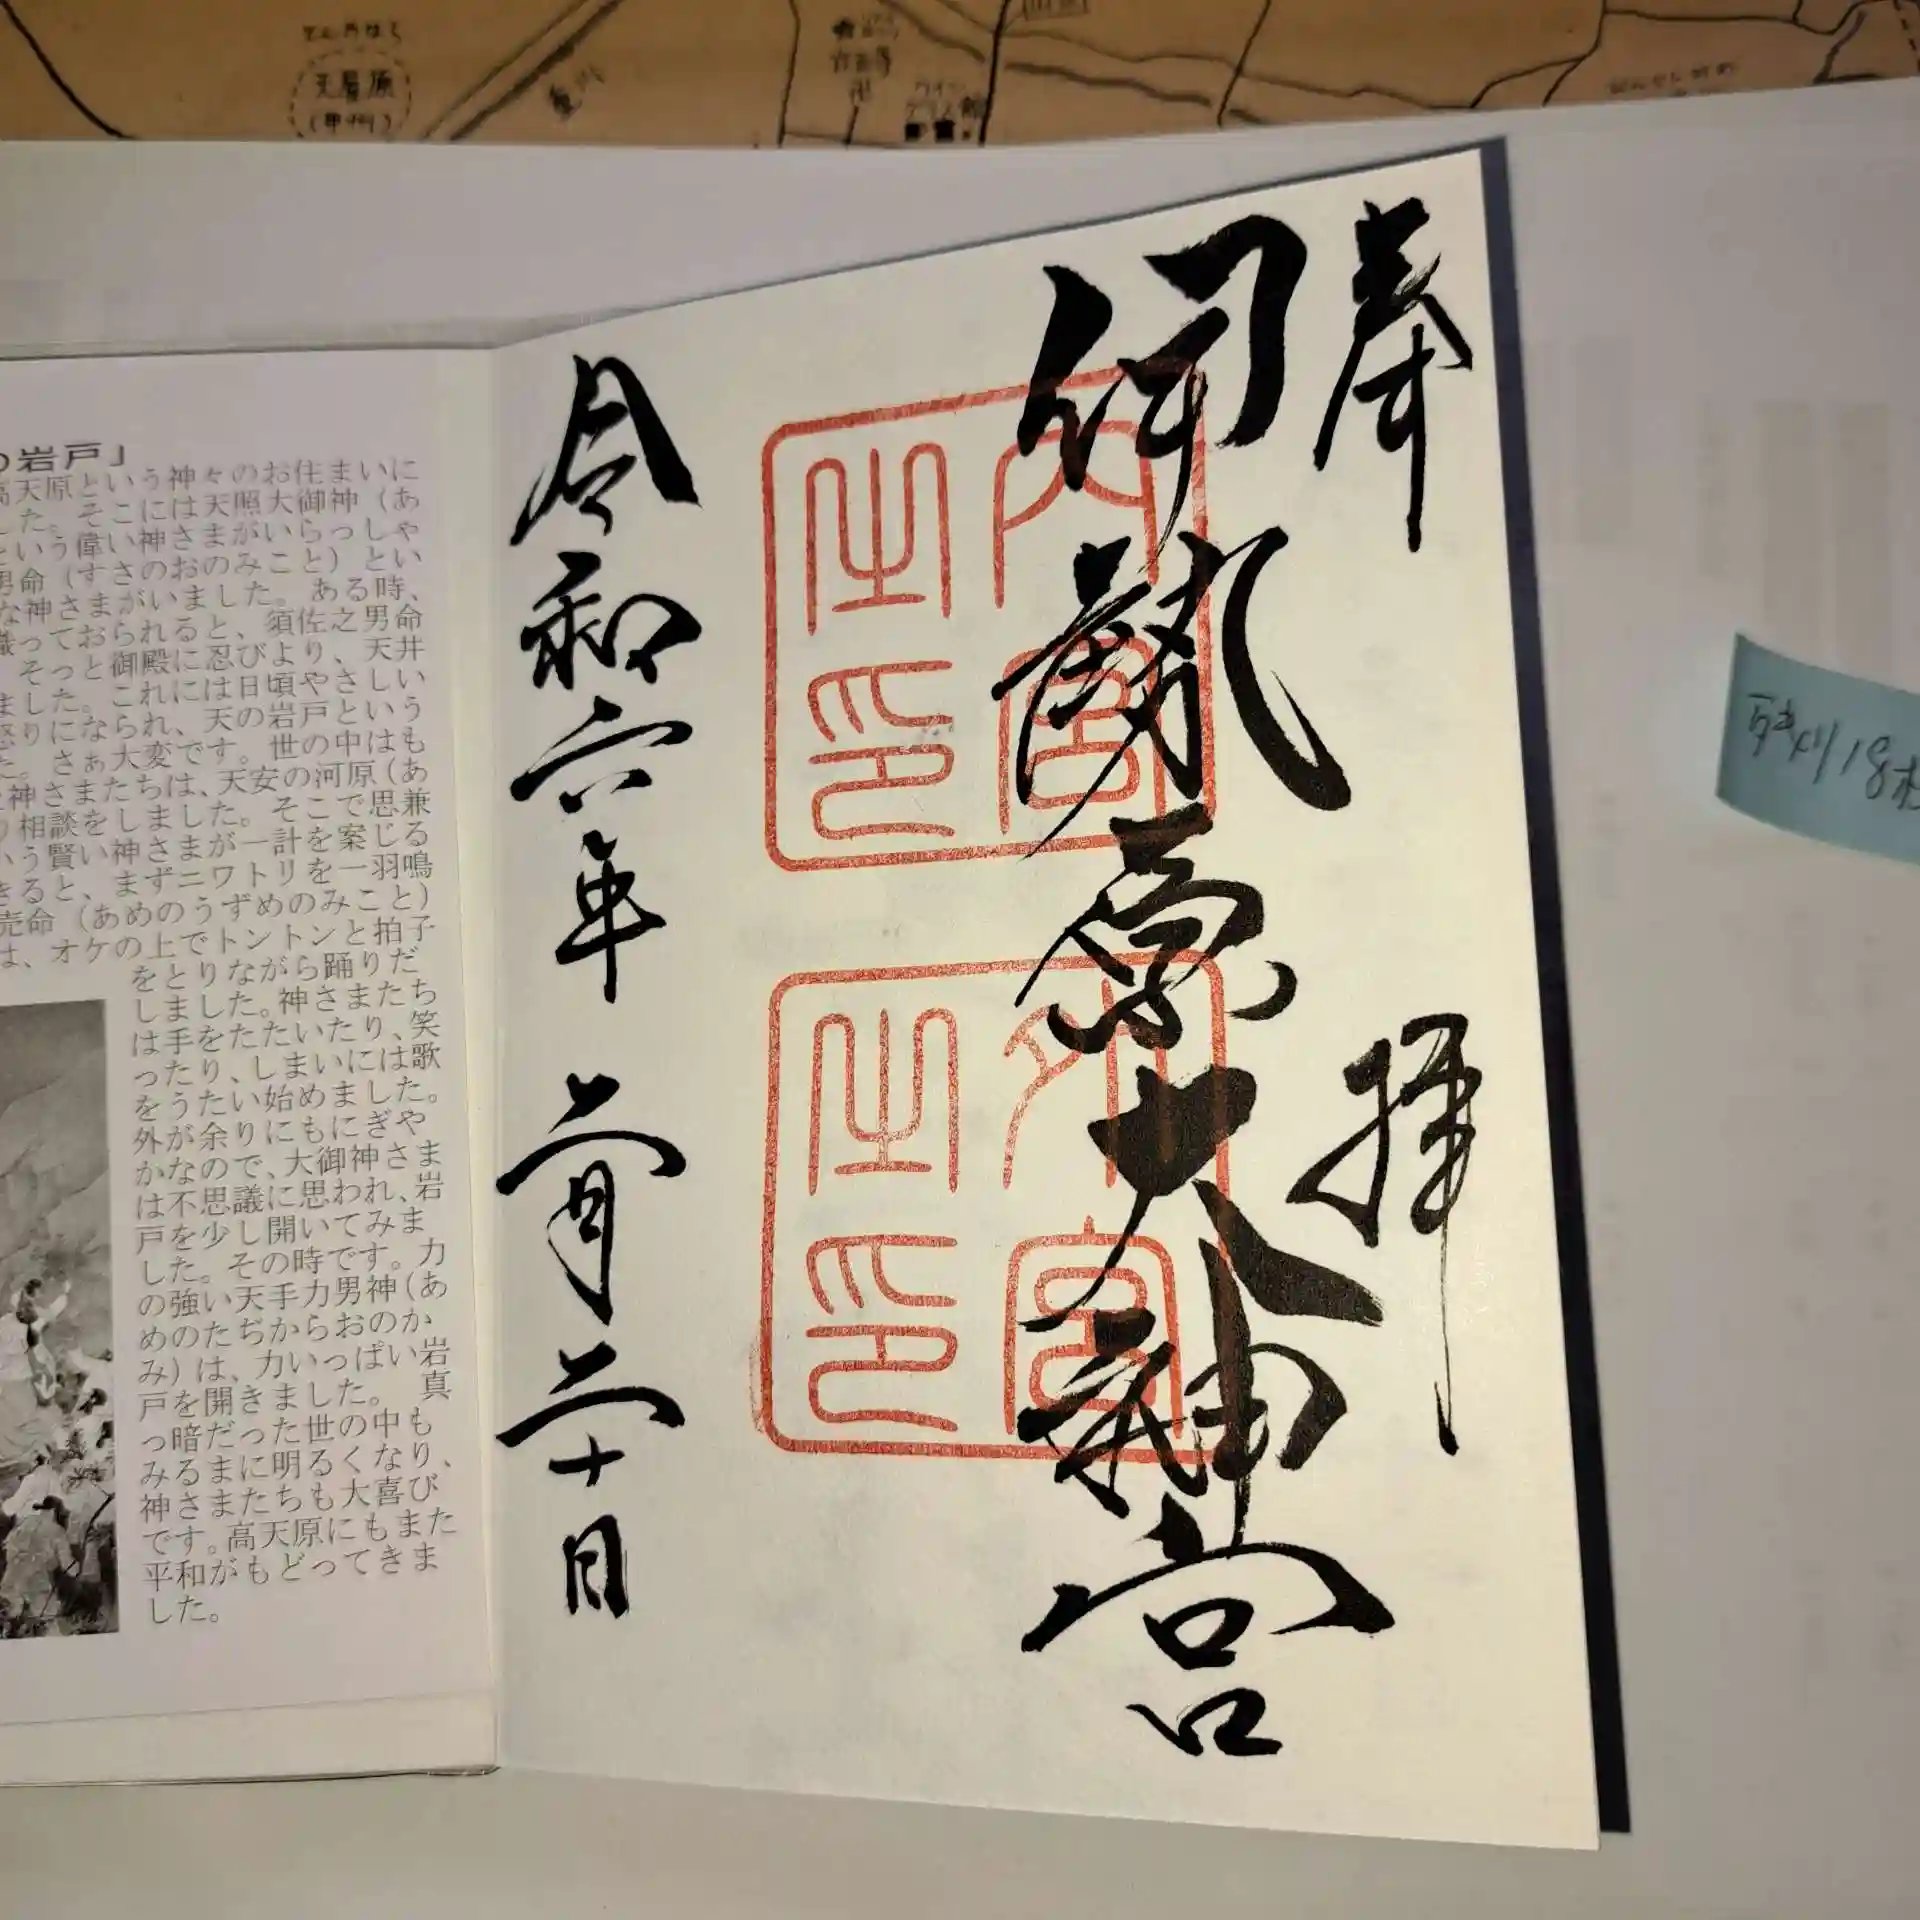 奉拝
伊勢原大神宮
内宮之印
外宮之印
令和六年二月二十日
岩戸」
高天原という神々のお住まいに
した。そこには天照大御神（あ
という偉い神さまがいらっしゃ
男命（すさのおのみこと）とい
な神さまがいました。ある時、
織っておられると、須佐之男命
そっと御殿に忍びより、天井
ました。これには日頃やさしい
怒りになられ、天の岩戸という
た。さぁ大変です。世の中はも
と神さまたちは、天安の河原（あ
り相談をしました。そこで思兼
いう賢い神さまが一計を案じる
きると、まずニワトリを一羽鳴
売命（あめのうずめのみこと）
は、オケの上でトントンと拍子
をとりながら踊りだ
しました。神さまたち
は手をたたいたり、笑
ったり、しまいには歌
をうたい始めました。
外が余りにもにぎや
かなので、大御神さま
は不思議に思われ、岩
戸を少し開いてみま
した。その時です。力
の強い天手力男神（あ
めのたぢからおのか
み）は、力いっぱい岩
戸を開きました。　真
っ暗だった世の中も
みるまに明るくなり、
神さまたちも大喜び
です。高天原にもまた
平和がもどってきま
した。